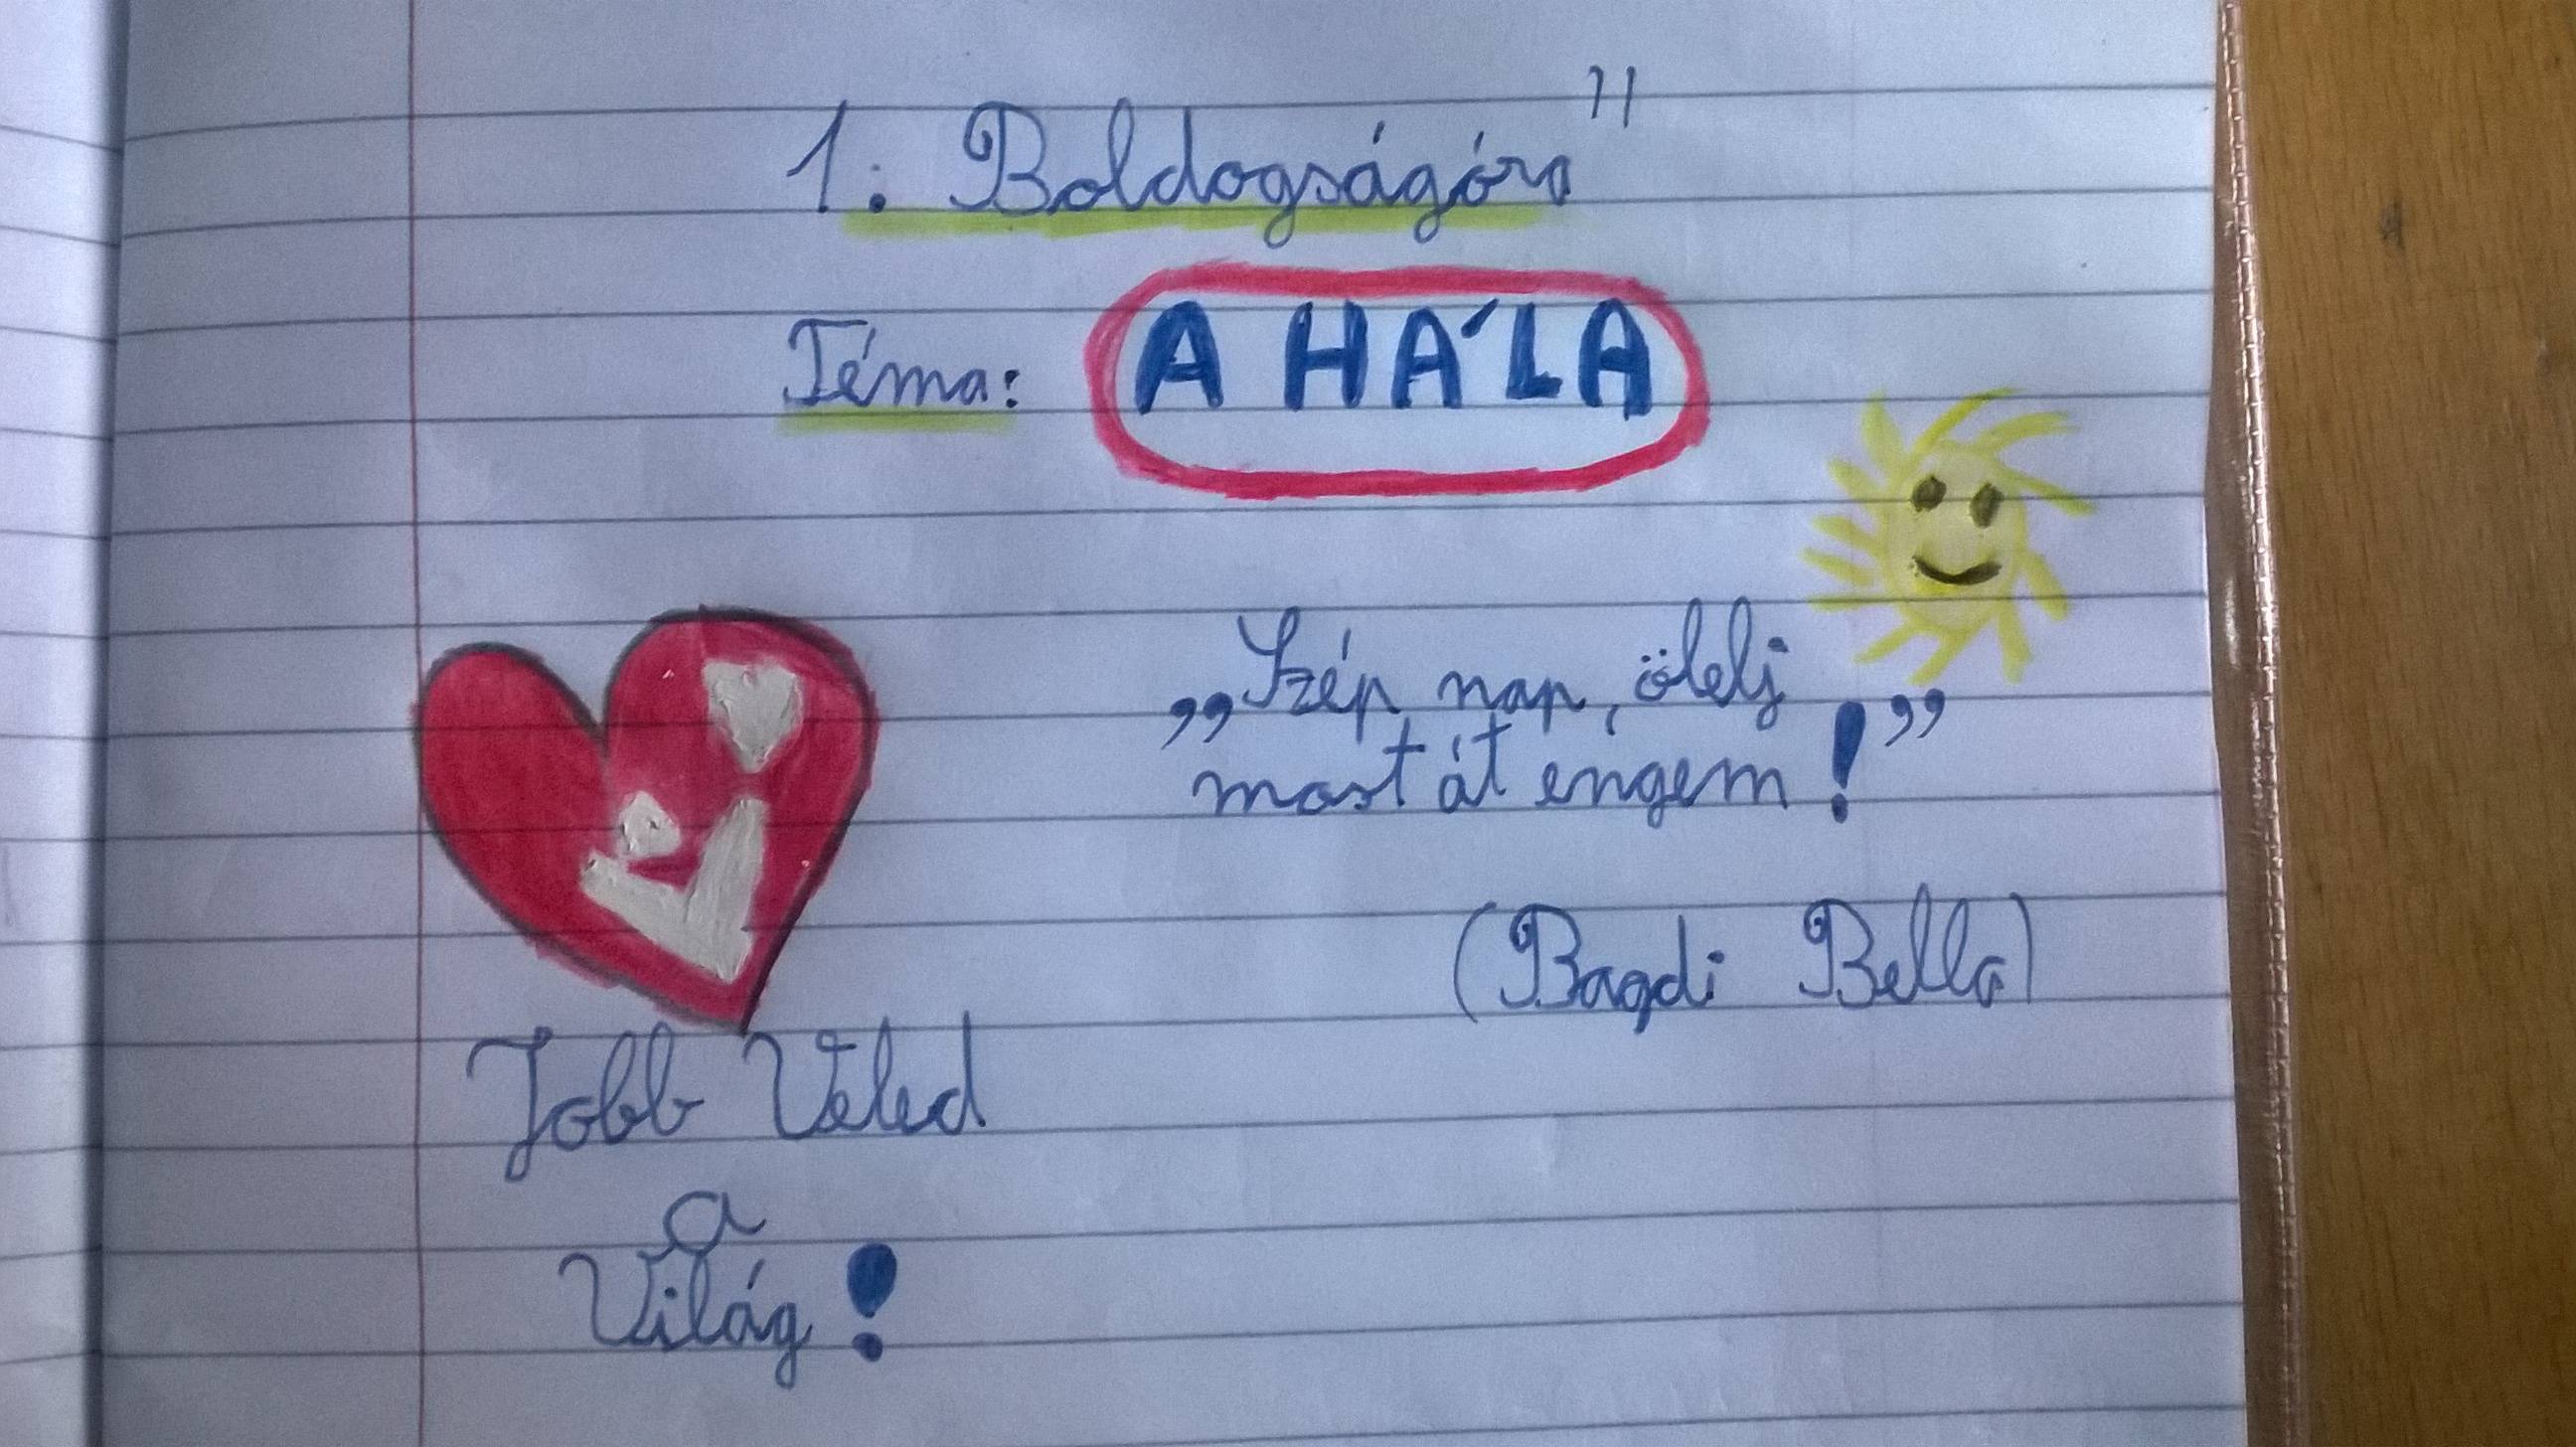 1. Boldogságóra"
Téma: A HÁLA
„Szép nap, ölelj
most át engem!”
(Bagdi Bella)
Jobb Veled
a
Világ!